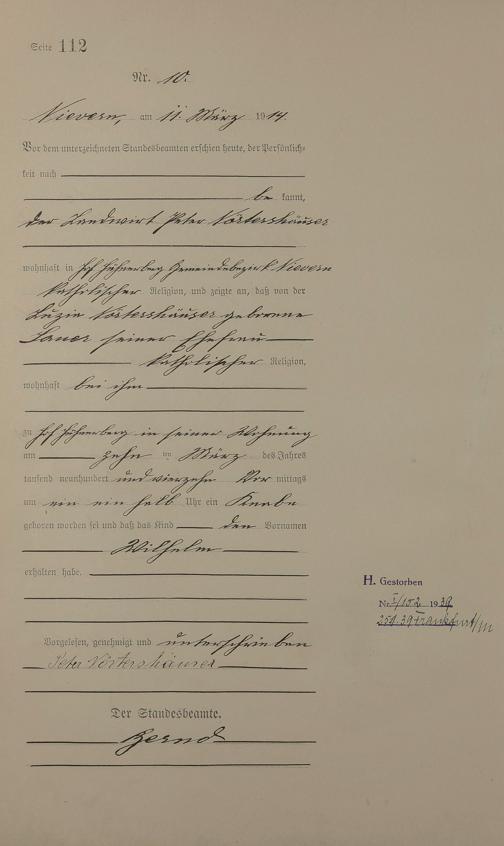 Seite 112
Nr. 10.
Nievern, am 11. März 1914.
Vor dem unterzeichneten Standesbeamten erschien heute, der Persönlich-
keit nach
be kannt,
der Landwirt Peter Nörtershäuser
wohnhaft in Hof Hühnerberg Gemeindebezirk Nievern
katholischer Religion, und zeigte an, daß von der
Luzia Nörtershäuser geborene
Sauer seiner Ehefrau
katholischer Religion,
wohnhaft bei ihm
zu Hof Hühnerberg in seiner Wohnung
am zehn ten März des Jahres
tausend neunhundert und vierzehn Vor mittags
um ein ein halb Uhr ein Knabe
geboren worden sei und daß das Kind den Vornamen
Wilhelm
erhalten habe.
H. Gestorben
Nr. I/152 1939
Frankfurt/M
Vorgelesen, genehmigt und unterschrieben
Peter Nörtershäuser
Der Standesbeamte.